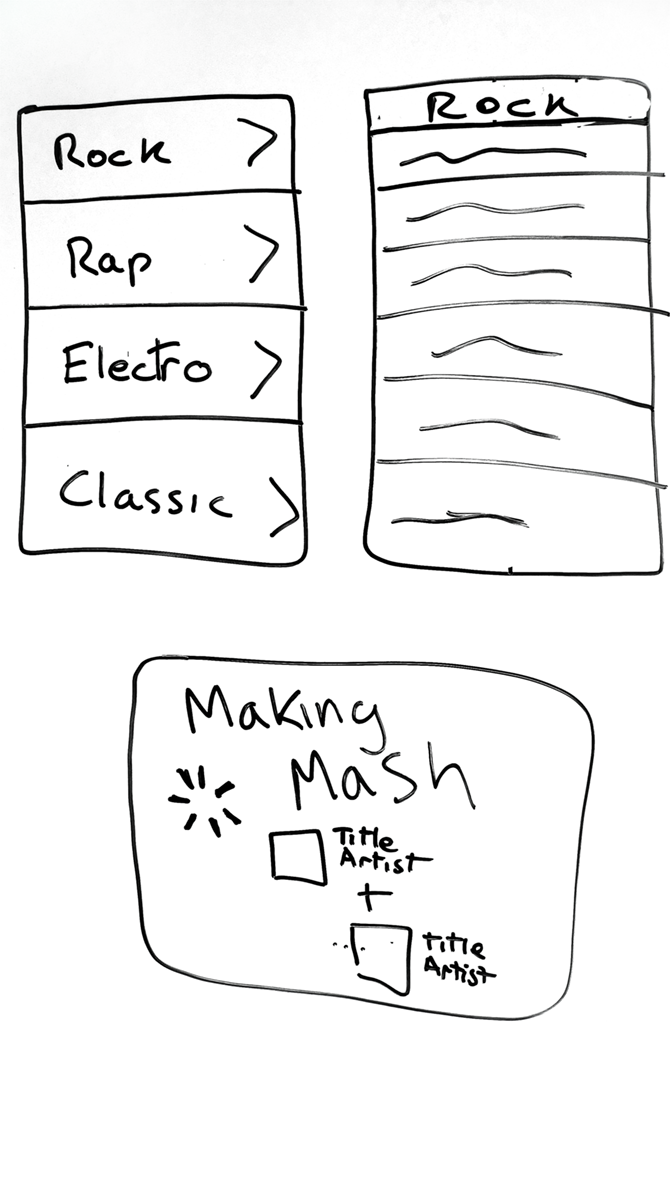 Rock
Rap
Electro
Classic
Rock
Making
Mash
Title
Artist
+
Title
Artist